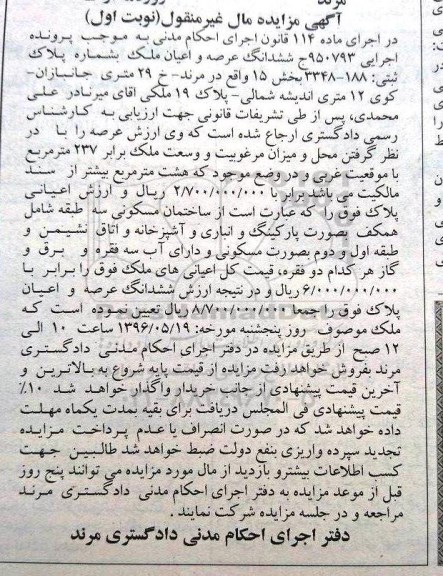 مرند
آگهی مزایده مال غیرمنقول(نوبت اول)
در اجرای ماده ۱۱۴ قانون اجرای احکام مدنی به موجب پرونده
اجرایی ۹۵۰۷۹۳ج ششدانگ عرصه و اعیان ملک بشماره پلاک
ثبتی: ۱۸۸-۳۳۴۸ بخش ۱۵ واقع در مرند- خ ۲۹ متری جانبازان-
کوی ۱۲ متری اندیشه شمالی- پلاک ۱۹ ملکی آقای میرنادر علی
محمدی، پس از طی تشریفات قانونی جهت ارزیابی به کارشناس
رسمی دادگستری ارجاع شده است که وی ارزش عرصه را با در
نظر گرفتن محل و میزان مرغوبیت و وسعت ملک برابر ۲۳۷ مترمربع
با موقعیت غربی و در وضع موجود که هشت مترمربع بیشتر از سند
مالکیت می باشد برابر با ۲/۷۰۰/۰۰۰/۰۰۰ ریال و ارزش اعیانی
پلاک فوق را که عبارت است از ساختمان مسکونی سه طبقه شامل
همکف بصورت پارکینگ و انباری و آشپزخانه و اتاق نشیمن و
طبقه اول و دوم بصورت مسکونی و دارای آب سه فقره و برق و
گاز هر کدام دو فقره، قیمت کل اعیانی های ملک فوق را برابر با
۶/۰۰۰/۰۰۰/۰۰۰ ریال و در نتیجه ارزش ششدانگ عرصه و اعیان
پلاک فوق را جمعا ۸/۷۰۰/۰۰۰/۰۰۰ ریال تعیین نموده است که
ملک موصوف روز پنجشنبه مورخه: ۱۳۹۶/۰۵/۱۹ ساعت ۱۰ الی
۱۲ صبح از طریق مزایده در دفتر اجرای احکام مدنی دادگستری
مرند بفروش خواهد رفت مزایده از قیمت پایه شروع به بالاترین و
آخرین قیمت پیشنهادی از جانب خریدار واگذار خواهد شد ۱۰٪
قیمت پیشنهادی فی المجلس دریافت برای بقیه بمدت یکماه مهلت
داده خواهد شد که در صورت انصراف یا عدم پرداخت مزایده
تجدید سپرده واریزی بنفع دولت ضبط خواهد شد طالبین جهت
کسب اطلاعات بیشتر و بازدید از مال مورد مزایده می توانند پنج روز
قبل از موعد مزایده به دفتر اجرای احکام مدنی دادگستری مرند
مراجعه و در جلسه مزایده شرکت نمایند .
دفتر اجرای احکام مدنی دادگستری مرند